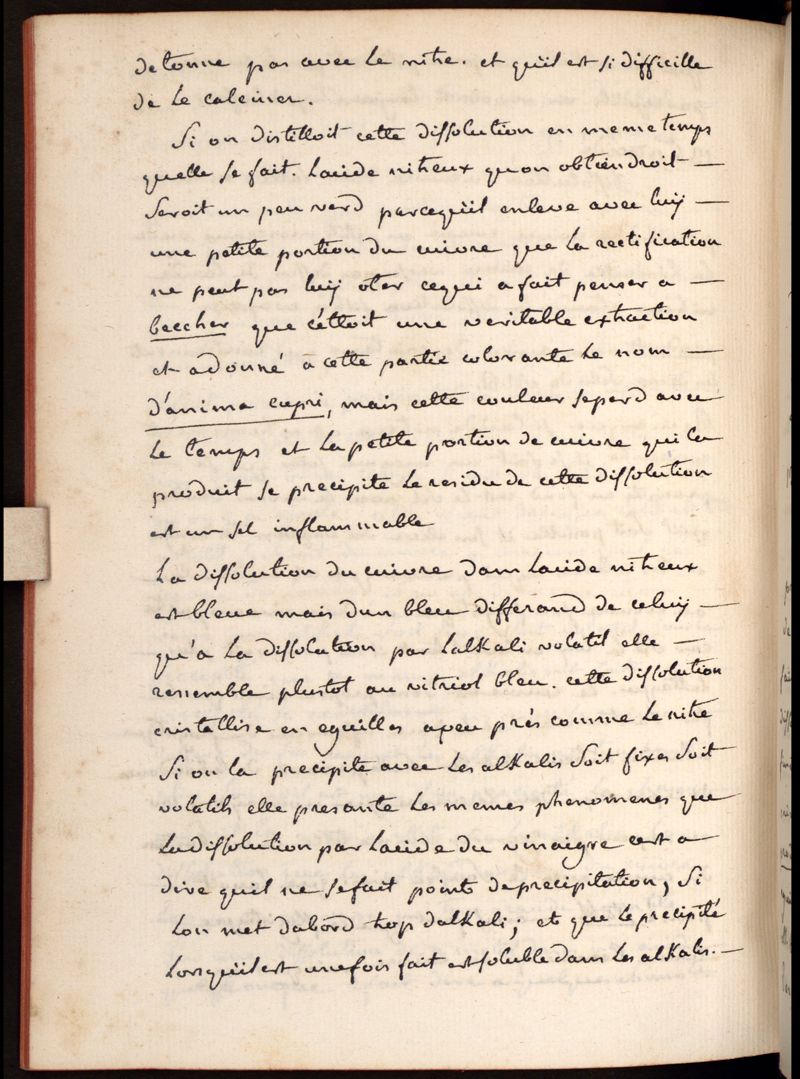 detonne pas avec le nitre. et quïl est si difficille
de le calciner.
Si on distilloit cette dissolution en meme temps
quelle se fait. Lacide nitreux quon obtiendroit —
Seroit un peu verd parcequïl enleve avec luÿ —
une petite portion du cuivre que la rectification
ne peut pas luÿ oter cequi a fait penser a —
beccher que c'ettoit une veritable extraction
et adonné a cette partie colorante le nom —
d'anima cupri, mais cette couleur seperd avec
le temps et la petite portion de cuivre qui la
produit se precipite le residu de cette dissolution
est un sel inflammable
La dissolution du cuivre dans lacide nitreux
est bleue mais dun bleu differand de celuÿ —
qu'a la dissolution par lalkali volatil elle —
ressemble plustot au vitriol bleu. cette dissolution
cristallise en eguilles apeu prés comme le nitre
Si on la precipite avec les alkalis Soit fixes Soit
volatils elle presante les memes phenomenes que
la dissolution par lacide du vinaigre cest a
dire quil ne se fait point de precipitation, Si
lon met dabord trop dalkali; et que le precipité
lorsquïl est unefois fait est soluble dans les alkalis. —